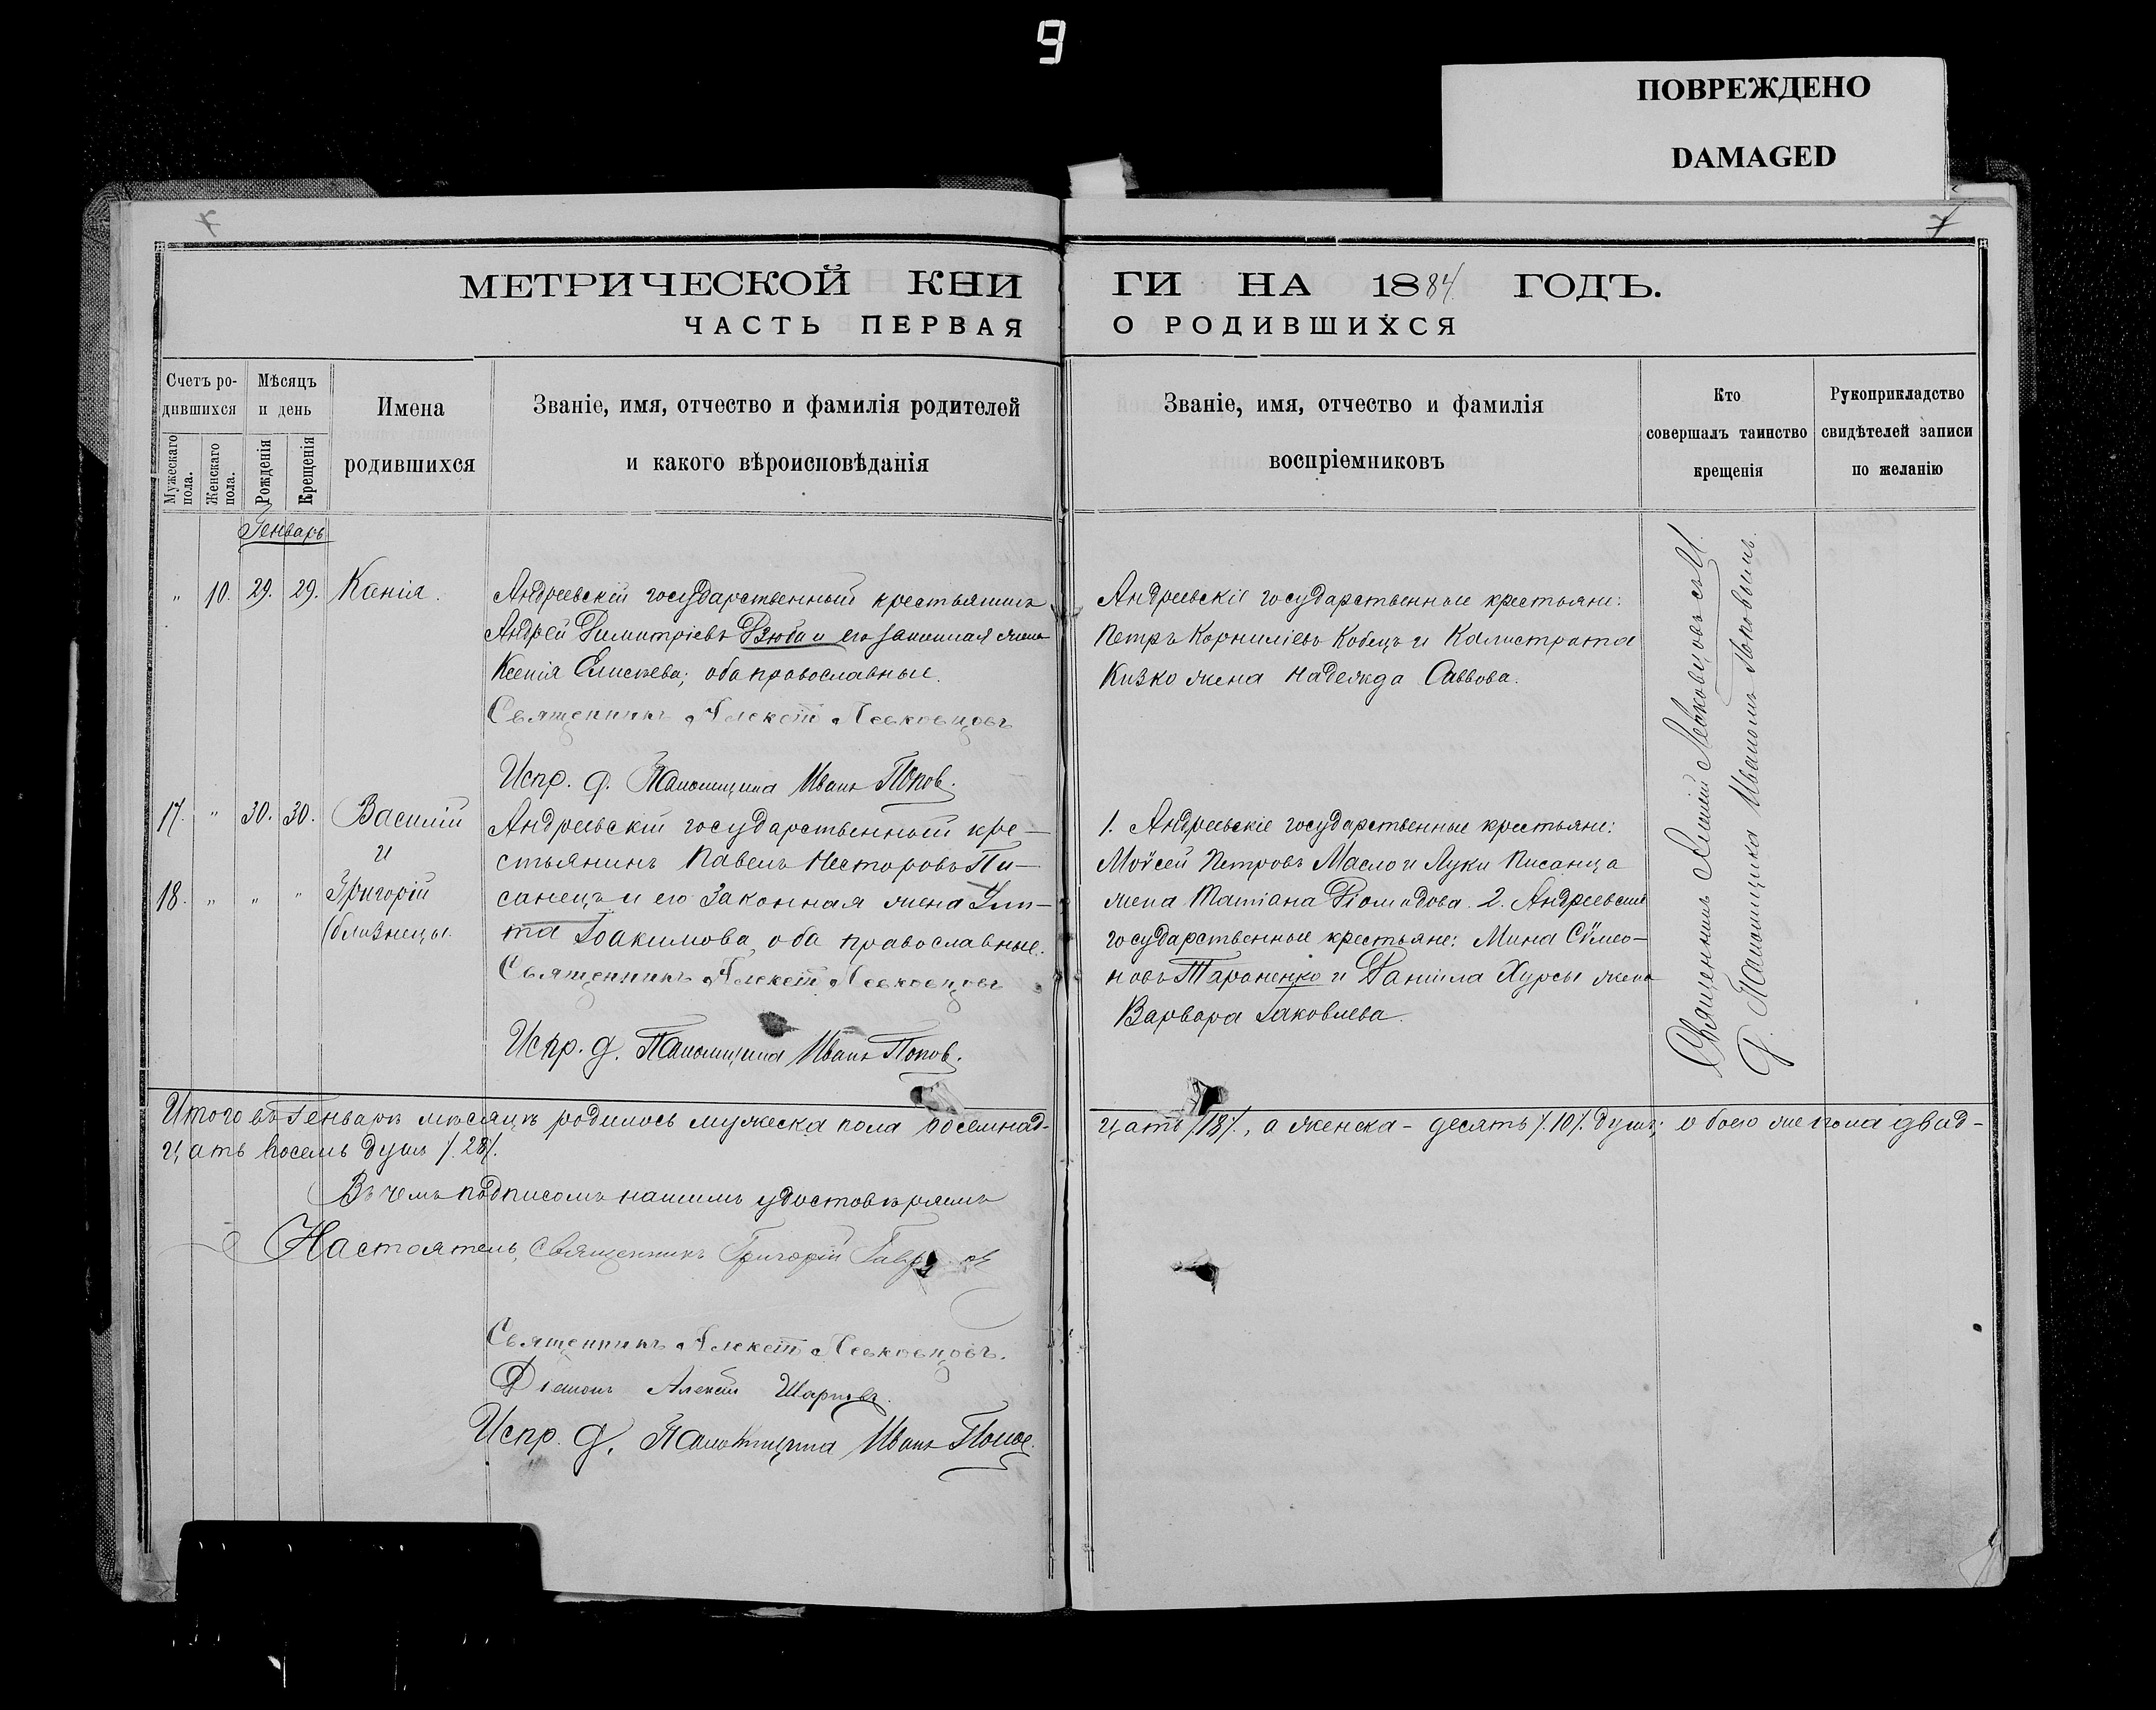 9
ПОВРЕЖДЕНО
DAMAGED
7
7
МЕТРИЧЕСКОЙ КНИ
ГИ НА 1884 ГОДЪ.
ЧАСТЬ ПЕРВАЯ
О РОДИВШИХСЯ
Счетъ ро-
дившихся
Мужескаго пола.
Женскаго пола.
Мѣсяцъ
и день
Рожденія
Крещенія
Имена
родившихся
Званіе, имя, отчество и фамилія родителей
и какого вѣроисповѣданія
Званіе, имя, отчество и фамилія
воспріемниковъ
Кто
совершалъ таинство
крещенія
Рукоприкладство
свидѣтелей записи
по желанію
Генварь
" 10. 29. 29. Ксенія.
Андреевскій государственный крестьянинъ
Андрей Димитріевъ Дзюба и его законная жена
Ксенія Елисеева; оба православные.
Священникъ Алексѣй Левковцовъ
Испр. д. Псаломщика Иванъ Попов.
Андреевскіе государственные крестьяне:
Петръ Корниліевъ Кобецъ и Калистрата
Кизко жена Надежда Саввова.
17. " 30. 30. Василій
и
18. " " " Григорій
(близнецы.
Андреевскій государственный кре-
стьянинъ Павелъ Несторовъ Пи-
санецъ и его законная жена Ули-
та Іоакимова, оба православные.
Священникъ Алексѣй Левковцовъ
Испр. д. Псаломщика Иванъ Попов.
1. Андреевскіе государственные крестьяне:
Моѵсей Петровъ Масло и Луки Писанца
жена Татіана Діомидова. 2. Андреевскіе
государственные крестьяне: Мина Сѵмео-
новъ Тараненко и Даніила Хурсы жена
Варвара Іаковлева.
Священникъ Алексѣй Левковцовъ съ И.
д. Псаломщика Иваномъ Поповымъ.
Итого въ Генварѣ мѣсяцѣ родилось мужеска пола восемнад-
цать /.18/., а женска - десять /.10/. душъ; обоего же пола двад-
цать восемь душъ /.28/.
Въ чемъ подписомъ нашимъ удостовѣряемъ
Настоятель, Священникъ Григорій
Священникъ Алексѣй Левковцовъ.
Діаконъ Алексѣй
Испр. д. Псаломщика Иванъ Попов.